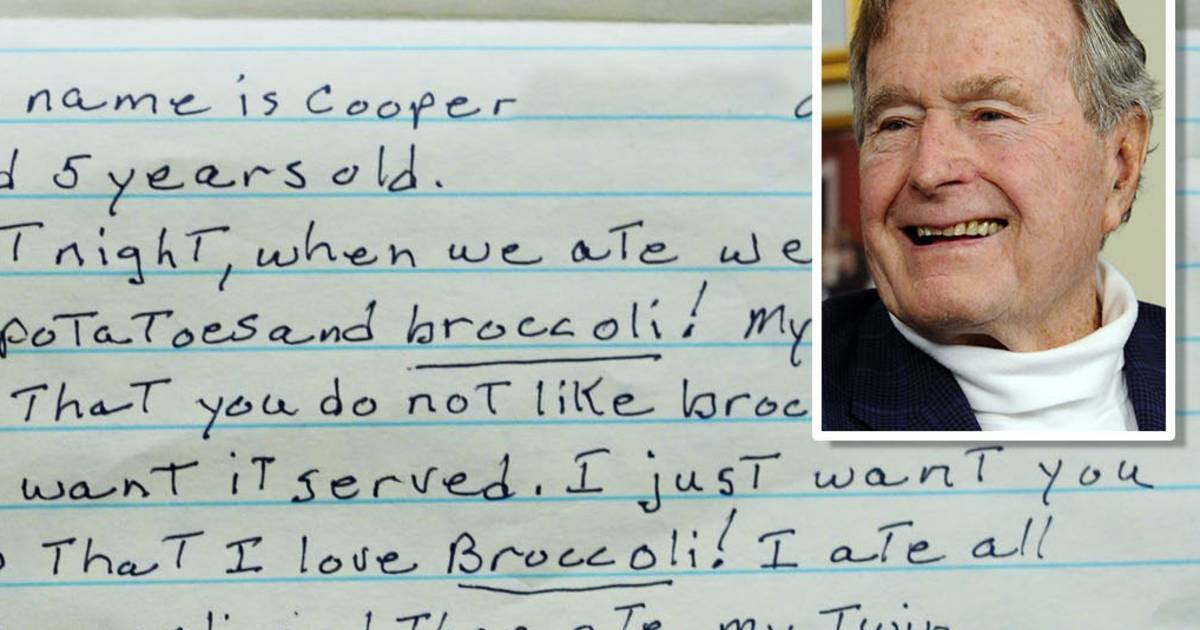 name is Cooper
5 years old.
night, when we ate we
potatoes and broccoli! My
That you do not like broc
want it served. I just want you
That I love Broccoli! I ate all
ate my Twin